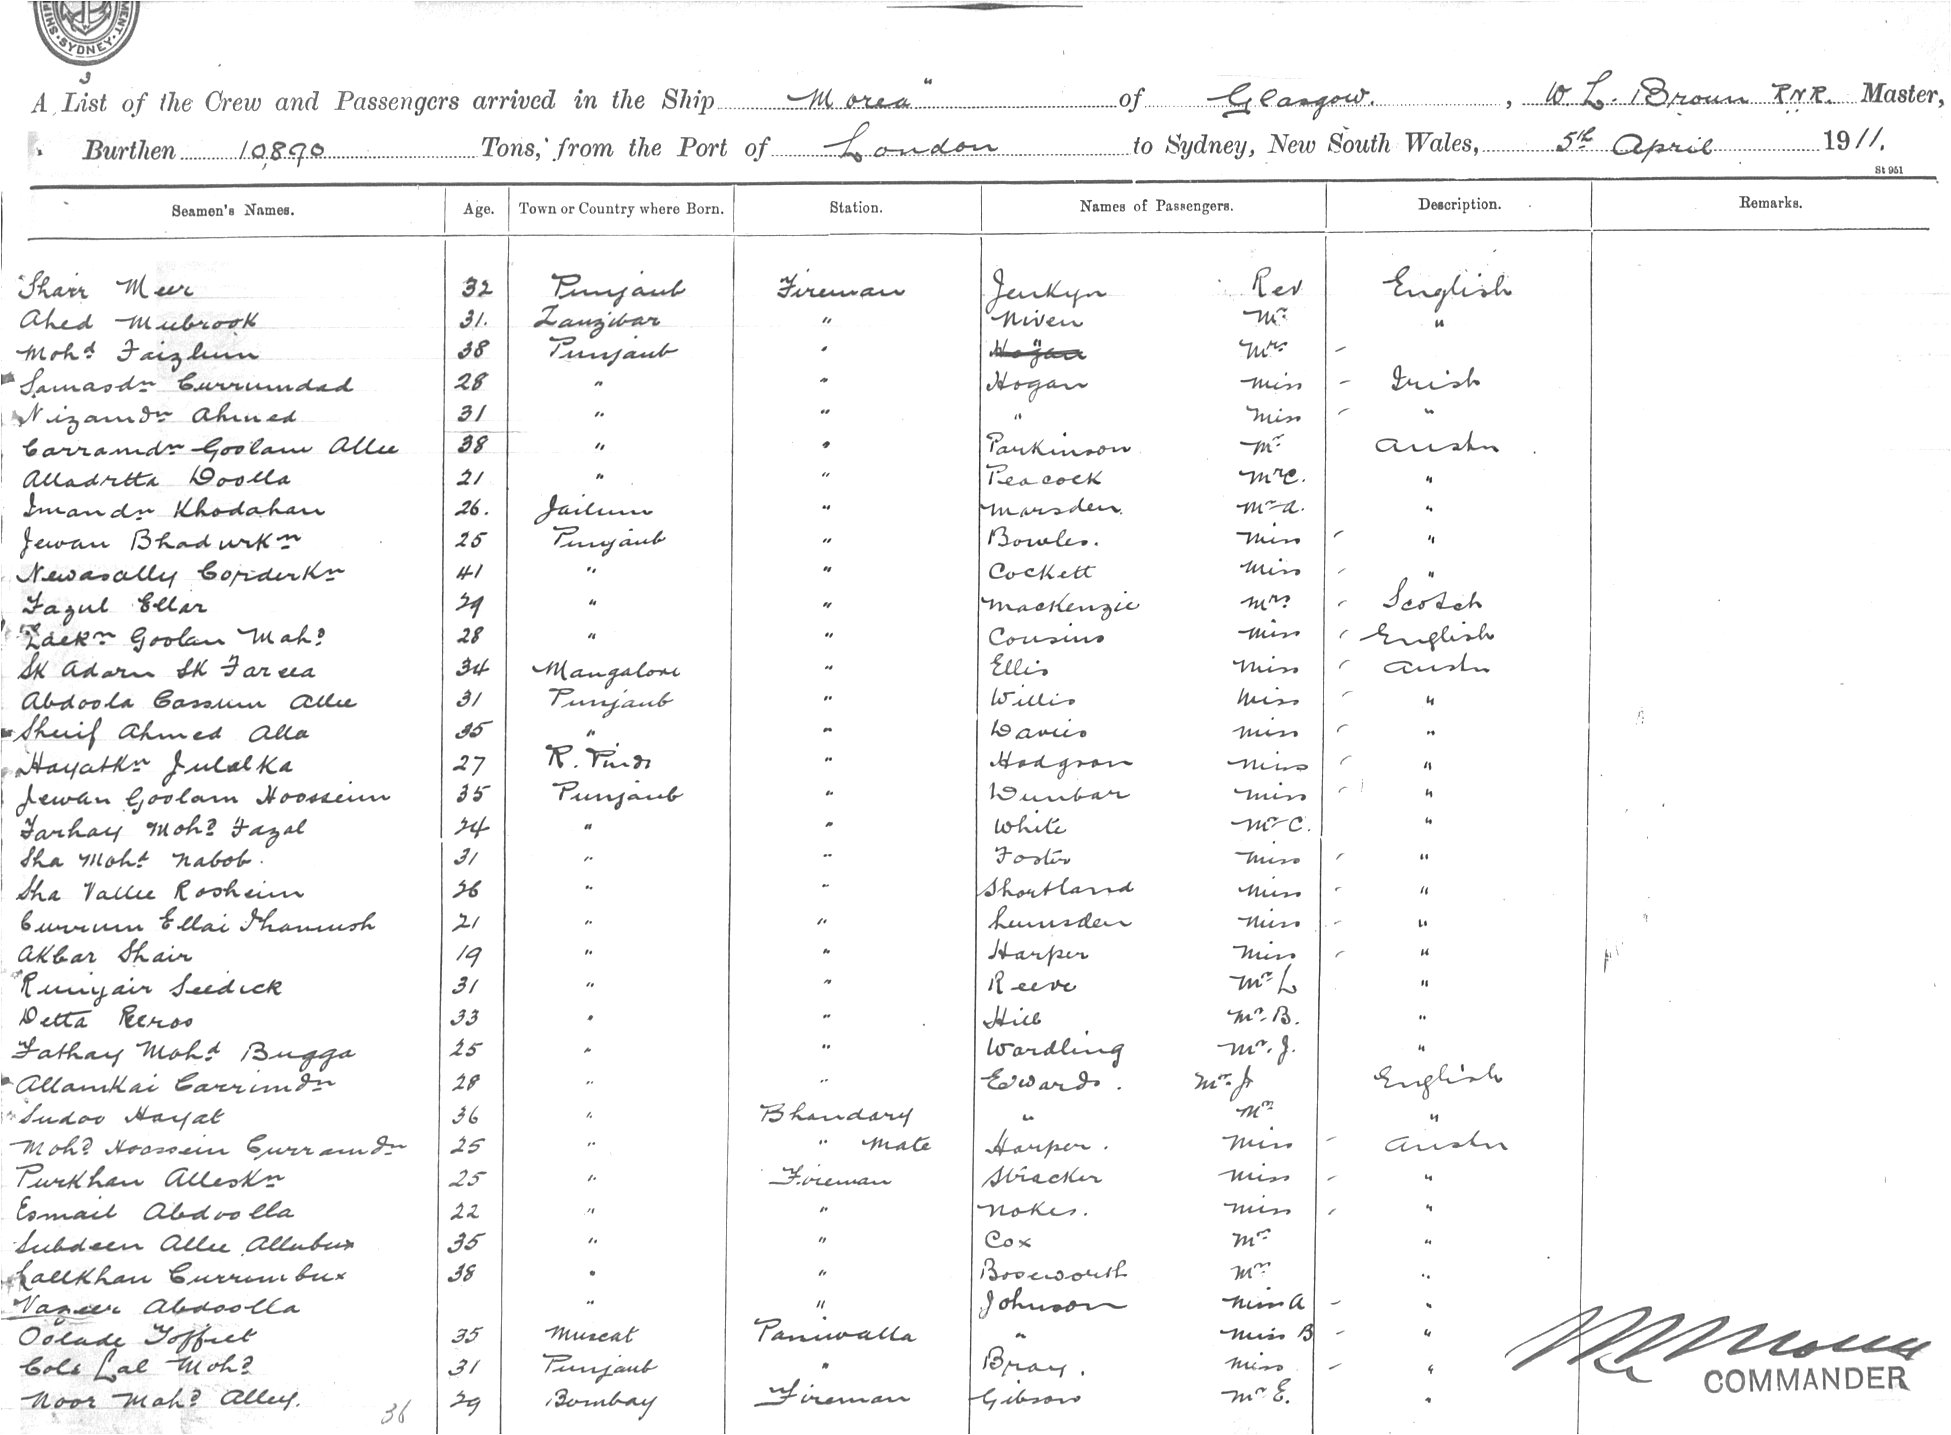 SYDNEY
3
A List of the Crew and Passengers arrived in the Ship "Morea" of Glasgow. , W L. Broun RNR. Master,
Burthen 10890 Tons, from the Port of London to Sydney, New South Wales, 5th April 1911.
St 951
Seamen's Names. Age. Town or Country where Born. Station. Names of Passengers. Description. Remarks.
Shair Meer 32 Punjaub Fireman Jenkyn Rev English
Ahed Mubrook 31. Zanzibar " Niven Mr "
Mohd Faizluin 38 Punjaub " Hogan Mrs -
Samasdn Currumdad 28 " " Hogan Miss - Irish
Nizamdn Ahmed 31 " " " Miss - "
Carramdn Goolam Allee 38 " " Parkinson Mr Austn
Alladitta Doolla 21 " " Peacock Mr C. "
Imamdn Khodahan 26. Jailum " Marsden. Mr A. "
Jewan Bhadurkn 25 Punjaub " Bowles. Miss - "
Newasally Corderkn 41 " " Cockett Miss - "
Fazul Ellar 29 " " Mackenzie Mrs - Scotch
Goolan Mohd 28 " " Cousins Miss - English
Sk Adam Sk Fareea 34 Mangalore " Ellis Miss - Austn
Abdoola Cassum Allee 31 Punjaub " Willis Miss - "
Sherif Ahmed Alla 35 " " Davies Miss - "
Hayatkn Julalka 27 R. Pindi " Hodgson Miss - "
Jewan Goolam Hoossein 35 Punjaub " Dunbar Miss - "
Farhay Mohd Fazal 24 " " White Mr C. "
Sha Mohd Nabob. 31 " " Foster Miss - "
Sha Vallee Rosheim 26 " " Shortland Miss - "
Currum Ellai 21 " " Lumsden Miss - "
Akbar Shair 19 " " Harper Miss - "
Runyair Seedick 31 " " Reeve Mr L "
Detta Peeroo 33 " " Hill Mr. B. "
Fathay Mohd Bugga 25 " " Wardling Mr. J. "
Allamkai Carrimdn 28 " " Edwards. Mr. J English
Sudoo Hayat 36 " Bhandary " Mrs "
Mohd Hoossein Curramdn 25 " " Mate Harper. Miss - Austn
Purkhan Alleskn 25 " Fireman Stracker Miss - "
Esmail Abdoolla 22 " " Nokes. Miss - "
Subdeen Allee Allabux 35 " " Cox Mr "
Lallkhan Currumbux 38 " " Bosworth Mrs "
Vazeer Abdoolla " " Johnson Miss A - "
Oolade Toffret 35 Muscat Paniwalla " Miss B - "
Cole Lal Mohd 31 Punjaub " Bray. Miss - "
Noor Mohd Alley. 29 Bombay Fireman Gibson Mr E. "
36
COMMANDER